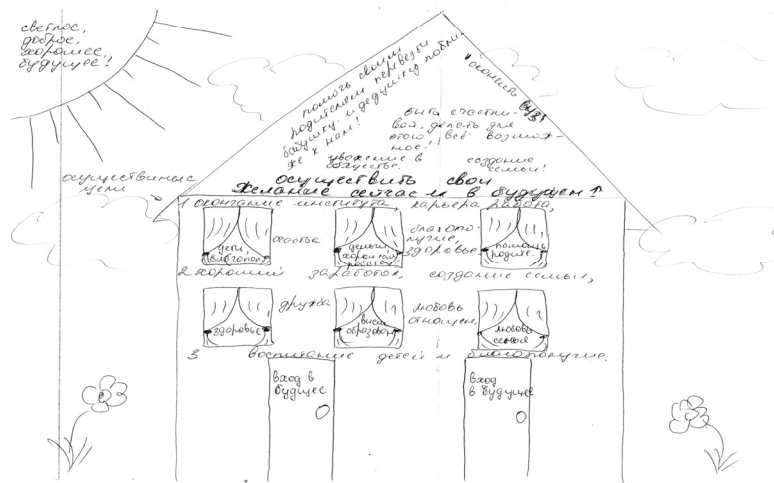 светлое,
доброе,
хорошее,
будущее!
помочь своим
родителям перевезти
бабушку и дедушку побли-
же к нам!
окончить вуз!
быть счастли-
вой, делать для
этого всё возмож-
ное!!
уважение в
обществе.
создание
семьи!
осуществить свои
желание сейчас и в будущем!
осуществиные
цели
1 окончание института, карьера работа,
дети,
благопол.
счастье
деньги
хорошая
работа
благопо-
лучие,
здоровье
помощь
родите.
2 хороший заработок, создание семьи,
здоровье
дружба
высш.
образован
любовь
отношен.
любовь
семья
3 воспитание детей и благополучие.
вход в
будущее
вход
в будущее